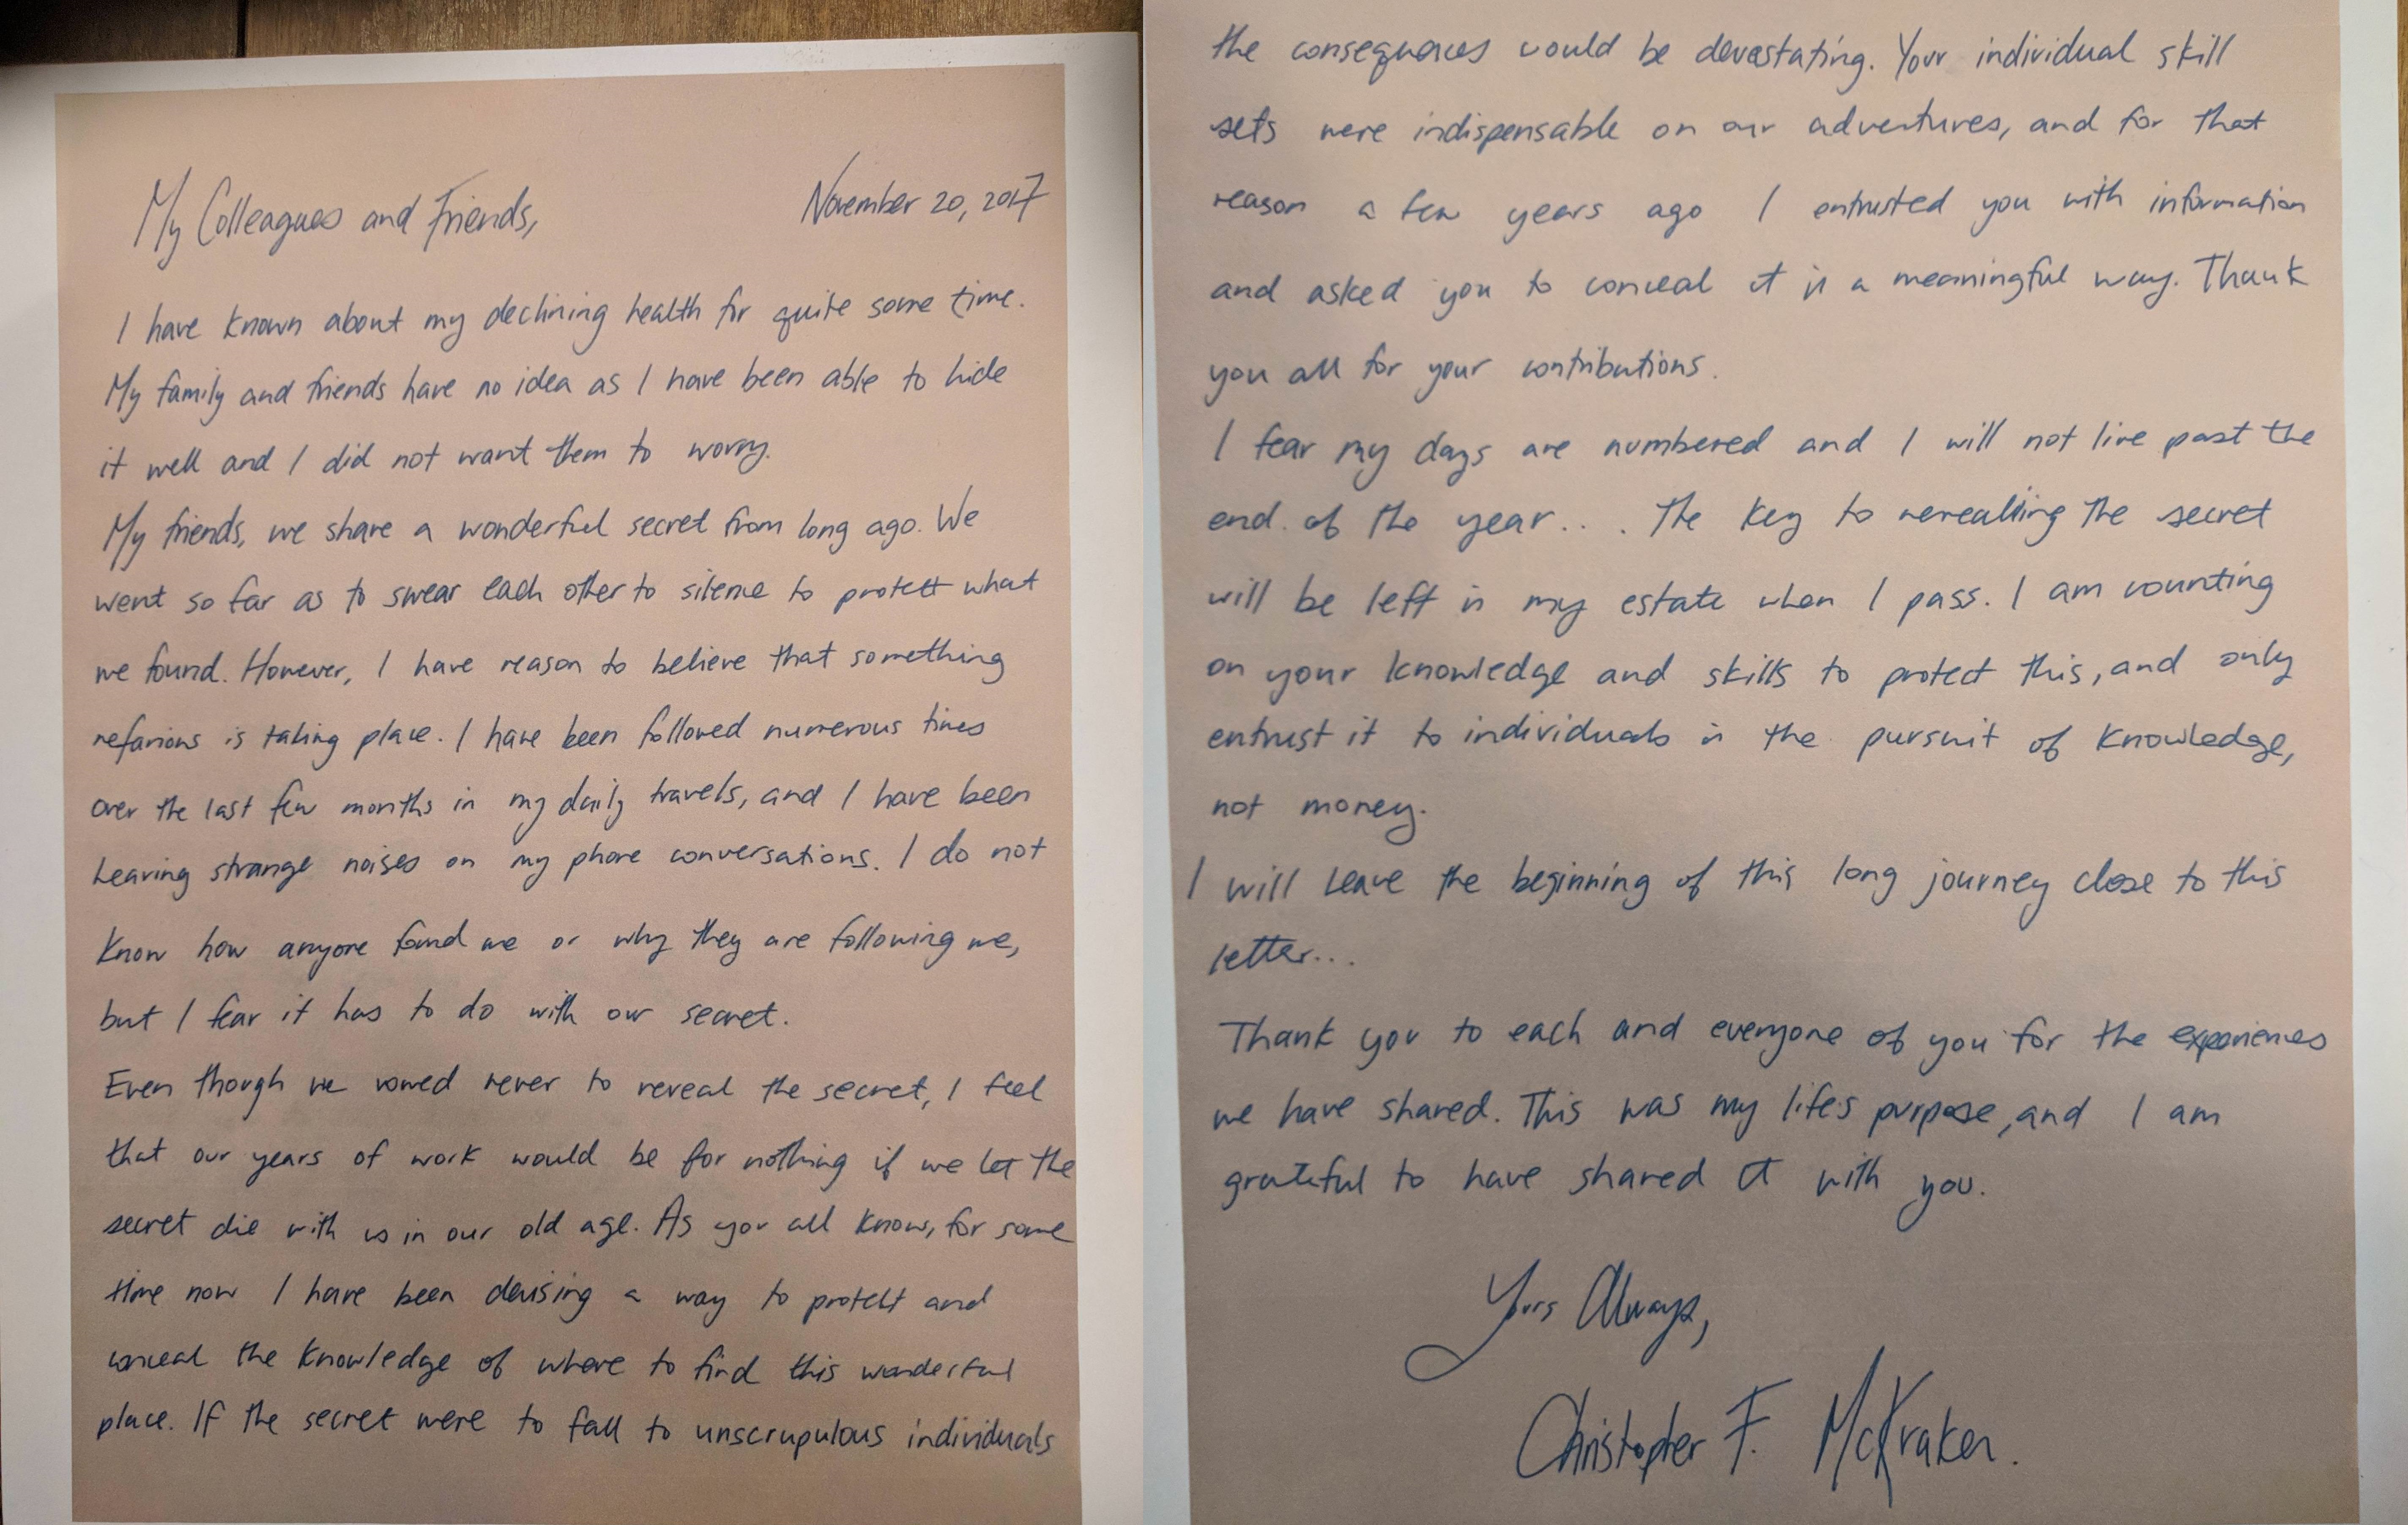 My Colleagues and Friends,
November 20, 2017
I have known about my declining health for quite some time.
My family and friends have no idea as I have been able to hide
it well and I did not want them to worry.
My friends, we share a wonderful secret from long ago. We
went so far as to swear each other to silence to protect what
we found. However, I have reason to believe that something
nefarious is taking place. I have been followed numerous times
over the last few months in my daily travels, and I have been
hearing strange noises on my phone conversations. I do not
know how anyone found me or why they are following me,
but I fear it has to do with our secret.
Even though we vowed never to reveal the secret, I feel
that our years of work would be for nothing if we let the
secret die with us in our old age. As you all know, for some
time now I have been devising a way to protect and
conceal the knowledge of where to find this wonderful
place. If the secret were to fall to unscrupulous individuals
the consequences would be devastating. Your individual skill
sets were indispensable on our adventures, and for that
reason a few years ago I entrusted you with information
and asked you to conceal it in a meaningful way. Thank
you all for your contributions.
I fear my days are numbered and I will not live past the
end of the year... The key to revealing the secret
will be left in my estate when I pass. I am counting
on your knowledge and skills to protect this, and only
entrust it to individuals in the pursuit of knowledge,
not money.
I will leave the beginning of this long journey close to this
letter...
Thank you to each and everyone of you for the experiences
we have shared. This was my life's purpose, and I am
grateful to have shared it with you.
Yours Always,
Christopher F. McKraken.